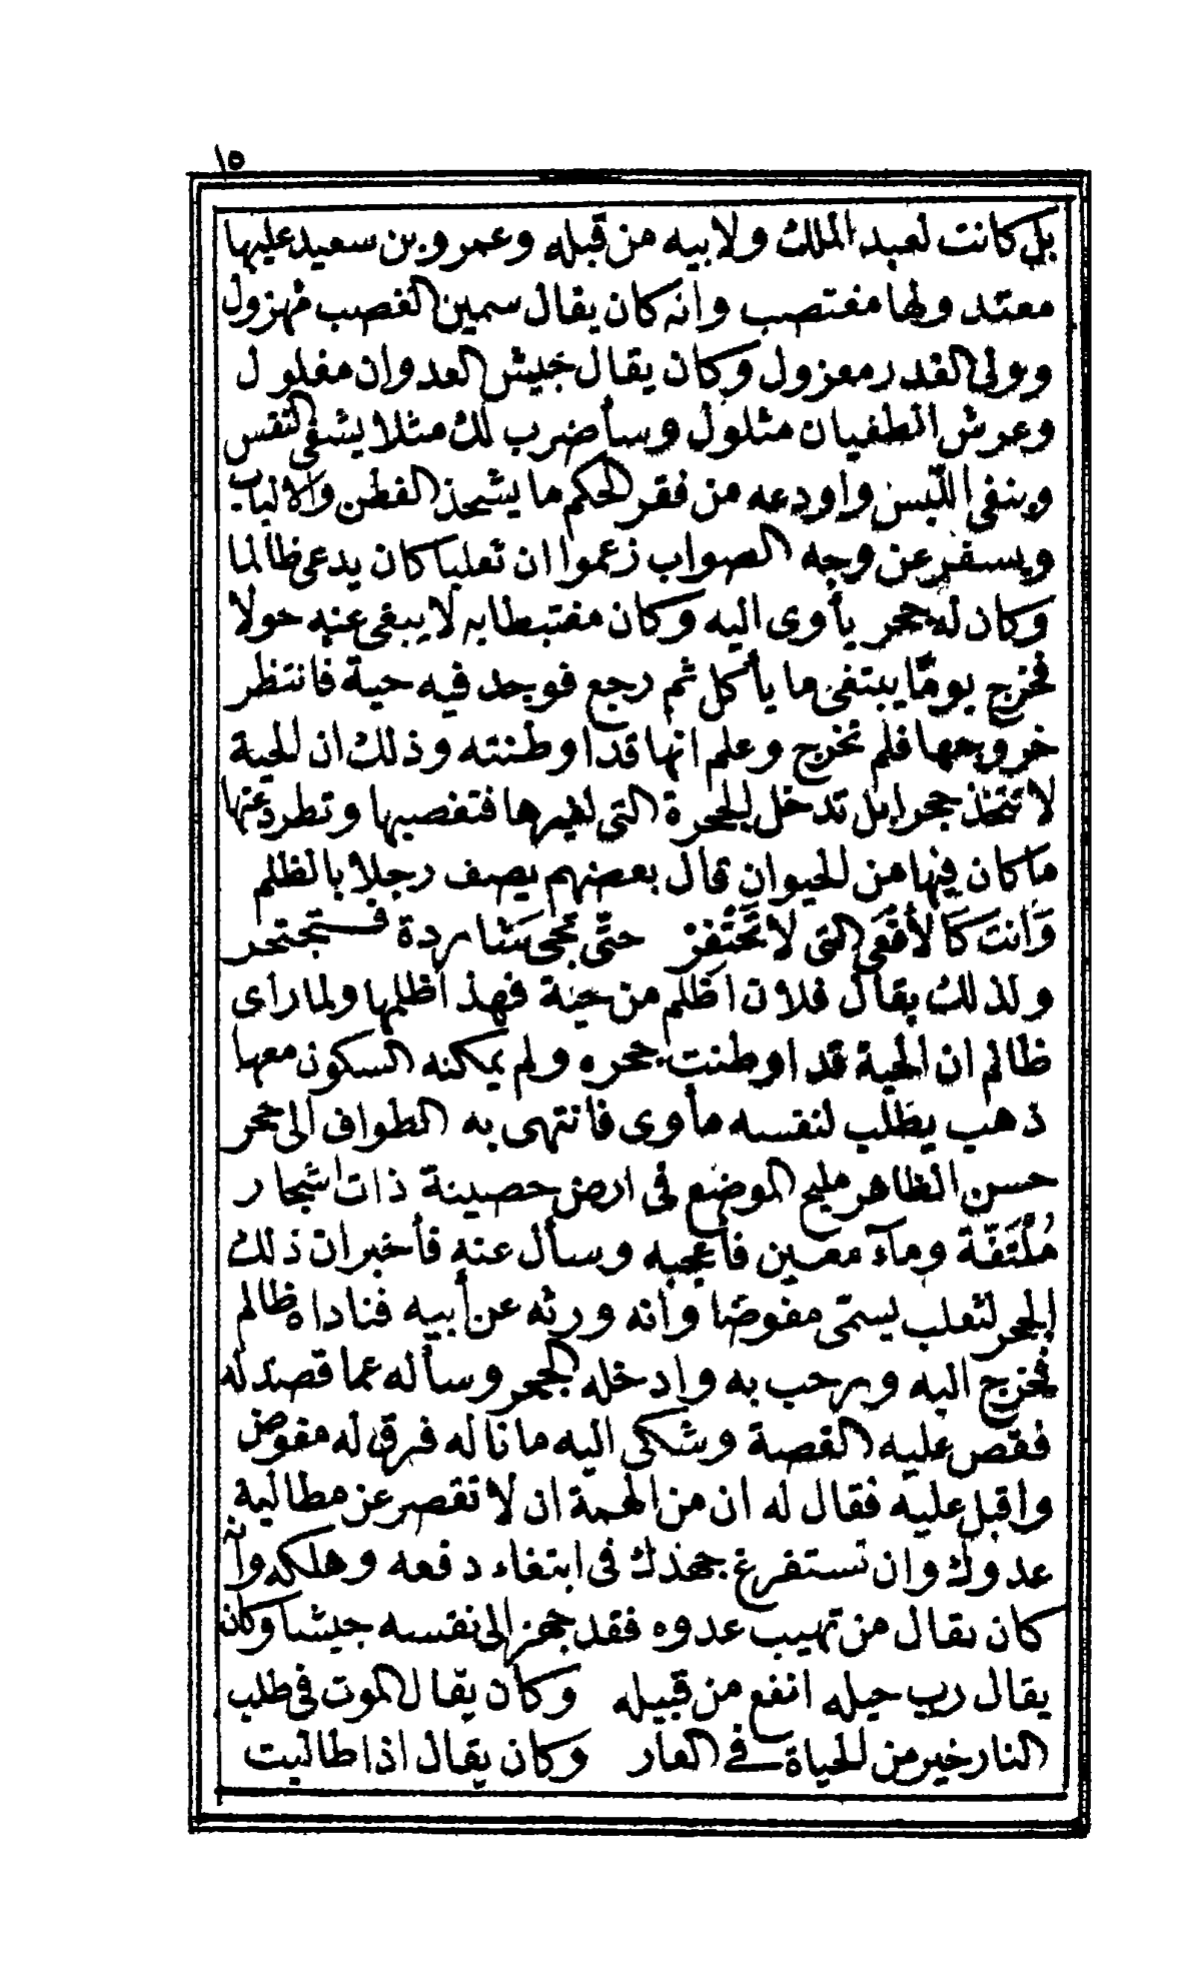 ١٥
بل كانت لعبد الملك ولابيه من قبله وعمرو بن سعيد عليها
معتد ولها مغتصب وانه كان يقال سمين الغصب مهزول
وولى الغدر معزول وكان يقال جيش العدوان مفلول
وعرش الطغيان مثلول وسأضرب لك مثلا يشفى النفس
وينفى اللبس واودعه من فقر الحكم ما يشحذ الفطن والالباب
ويسفر عن وجه الصواب زعموا ان ثعلبا كان يدعى ظالما
وكان له جحر يأوى اليه وكان مغتبطا به لا يبغى عنه حولا
فخرج يوما يبتغى ما يأكل ثم رجع فوجد فيه حية فانتظر
خروجها فلم تخرج وعلم انها قد اوطنته وذلك ان الحية
لا تتخذ جحرا بل تدخل الجحرة التى لغيرها فتغصبها وتطرد عنها
ما كان فيها من الحيوان قال بعضهم يصف رجلا بالظلم
وَانت كَالأفْعَى التى لا تَحْتَفِرْ حتّى تجى شاردة فتجتحر
ولذلك يقال فلان اظلم من حية فهذ اظلمها ولما راى
ظالم ان الحية قد اوطنت جحره ولم يمكنه السكون معها
ذهب يطلب لنفسه مأوى فانتهى به الطواف الى جحر
حسن الظاهر مليح الموضع فى ارض حصينة ذات اشجار
مُلْتَفّة ومآء معين فأعجبه وسأل عنه فأخبر ان ذلك
الجحر لثعلب يسمّى مفوضا وانه ورثه عن أبيه فناداه ظالم
فخرج اليه ورحب به وادخله الجحر وسأله عما قصد له
فقص عليه القصة وشكى اليه ما ناله فرق له مفوض
واقبل عليه فقال له ان من الهمة ان لا تقصر عن مطالبة
عدوك وان تستفرغ جهدك فى ابتغاء دفعه وهلكه وانه
كان يقال من تهيب عدوه فقد جهز الى نفسه جيشا وكان
يقال رب حيله انفع من قبيله وكان يقال الموت فى طلب
النار خير من الحياة فى العار وكان يقال اذا طالبت